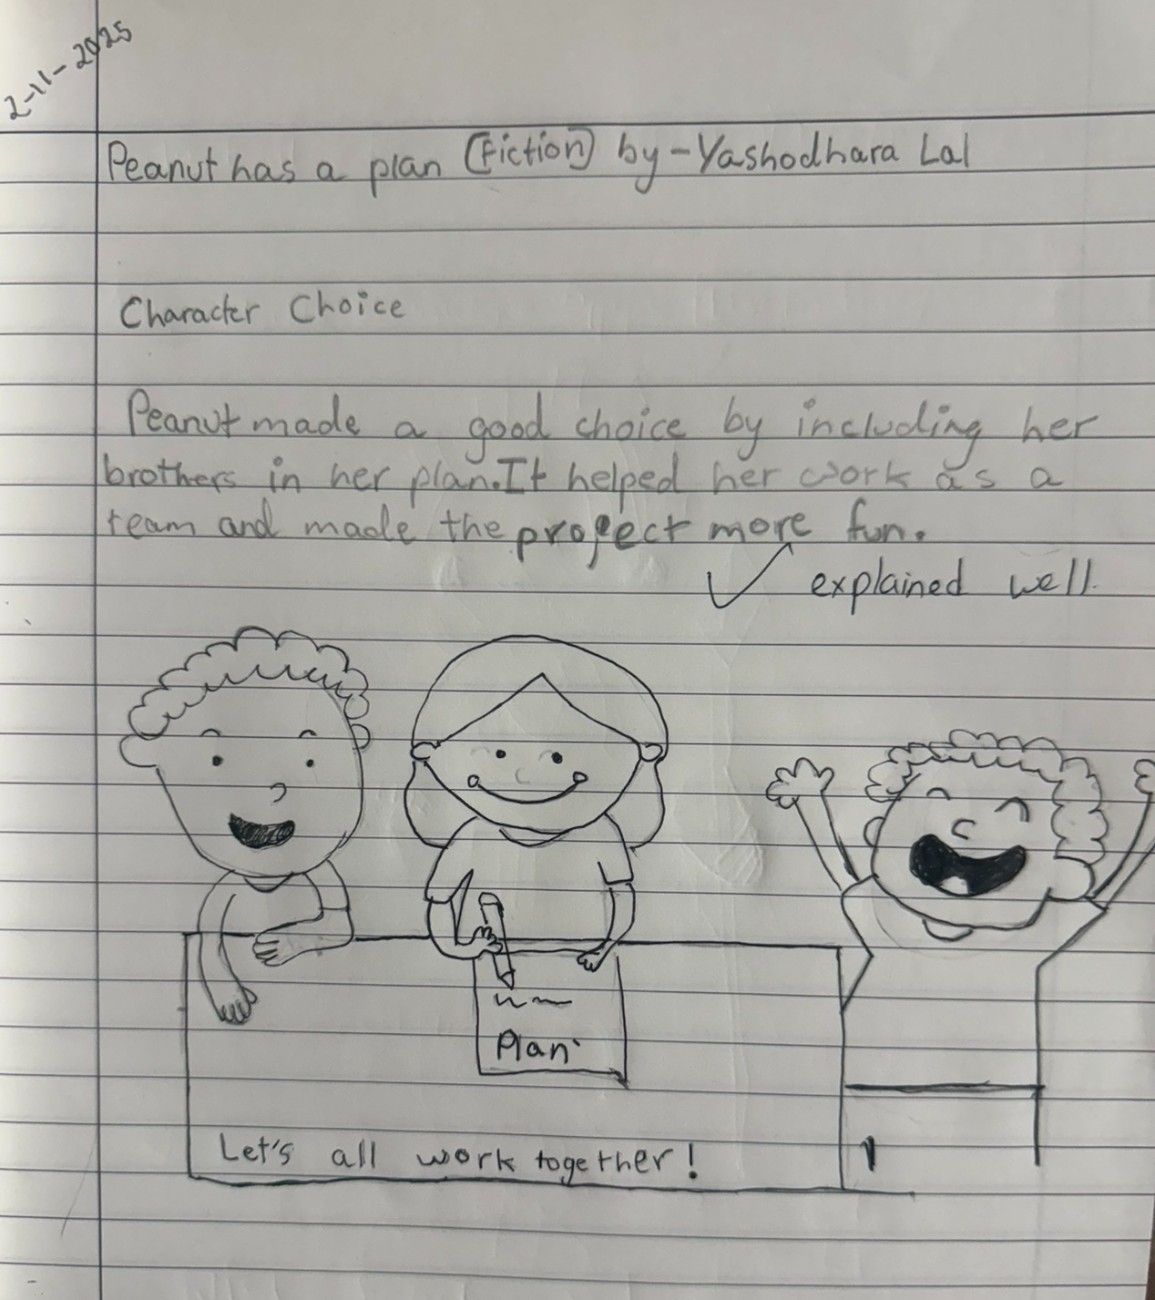 2-11-2025
Peanut has a plan (Fiction) by-Yashodhara Lal
Character Choice
Peanut made a good choice by including her
brothers in her plan. It helped her work as a
team and made the project more fun.
explained well.
Plan
Let's all work together!